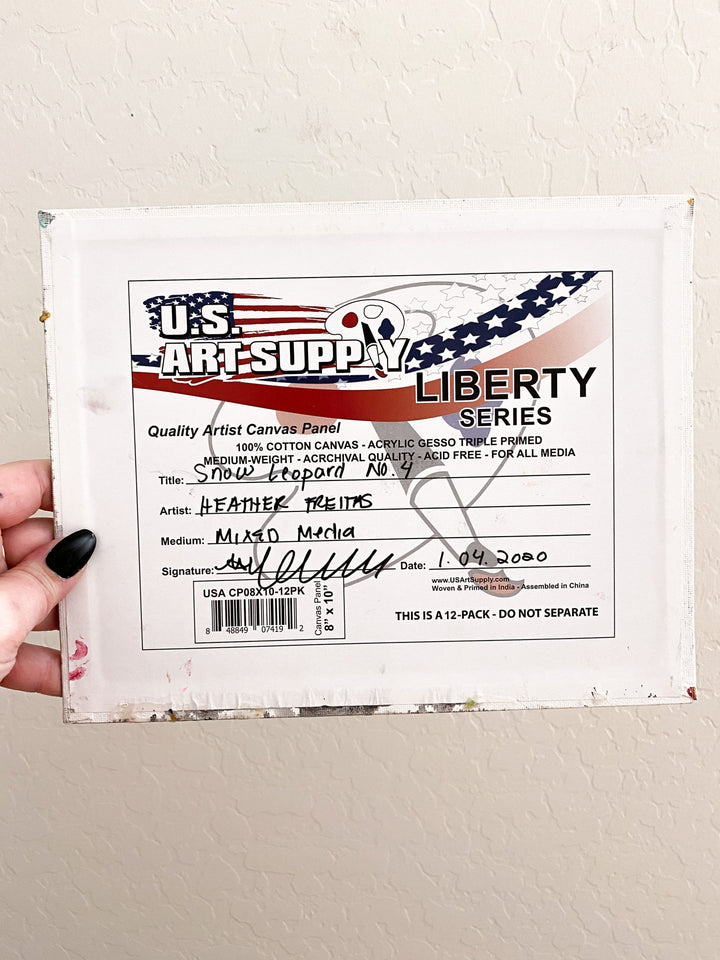 U.S.
ART SUPPLY
LIBERTY
SERIES
Quality Artist Canvas Panel
100% COTTON CANVAS - ACRYLIC GESSO TRIPLE PRIMED
MEDIUM-WEIGHT - ACRCHIVAL QUALITY - ACID FREE - FOR ALL MEDIA
Title: Snow Leopard No. 4
Artist: HEATHER FREITAS
Medium: Mixed Media
Signature: Date: 1.04.2020
www.USArtSupply.com
Woven & Primed in India - Assembled in China
USA CP08X10-12PK
8 48849 07419 2
Canvas Panel
8" x 10"
THIS IS A 12-PACK - DO NOT SEPARATE